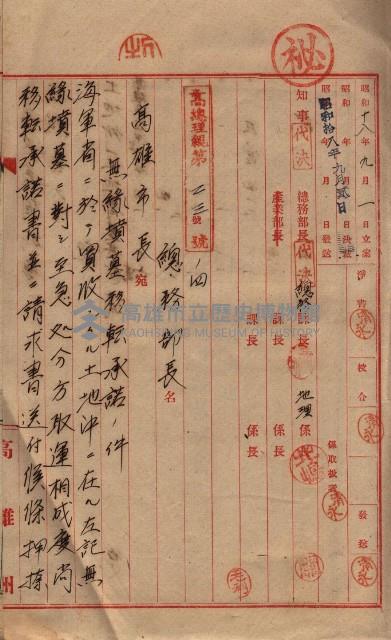 秘
昭和十八年九月一日立案
昭和　年　月　日決裁
昭和拾八年九月貳日
淨書
校合
發送
係取扱者
知事代決
總務部長代決
產業部長
總務課長
課長
課長
地理係長
係長
係長
高總理親第二三號ノ四
總務部長名
高雄市長宛
無緣墳墓移転承諾ノ件
海軍省ニ於テ買收スル土地沖ニ在ル左記無
緣墳墓ニ對シ至急処分方取運相成度尚
移転承諾書並ニ請求書送付候條押捺
高雄州
高雄市立歷史博物館
KAOHSIUNG MUSEUM OF HISTORY